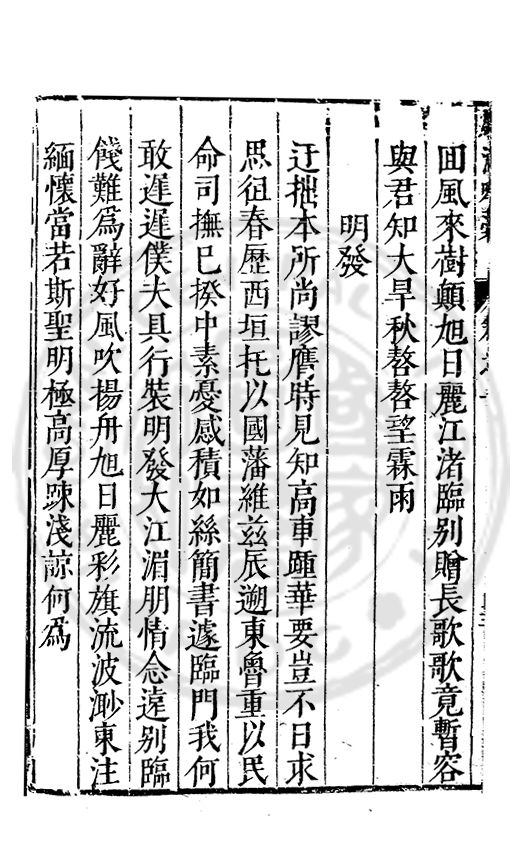 田風來樹顛旭日麗江渚臨別贈長歌歌竟暫容
與君知大旱秋嗸嗸望霖雨
明發
迂拙本所尚謬膺時見知高車踵華要豈不日求
思徂春歷西垣托以國藩維茲辰遡東魯重以民
命司撫已揆中素憂感積如絲簡書遽臨門我何
敢遲遲僕夫具行裝明發大江湄朋情念遠別臨
餞難爲辭好風吹揚舟旭日麗彩旗流波渺東注
緬懷當若斯聖明極高厚踈淺諒何爲